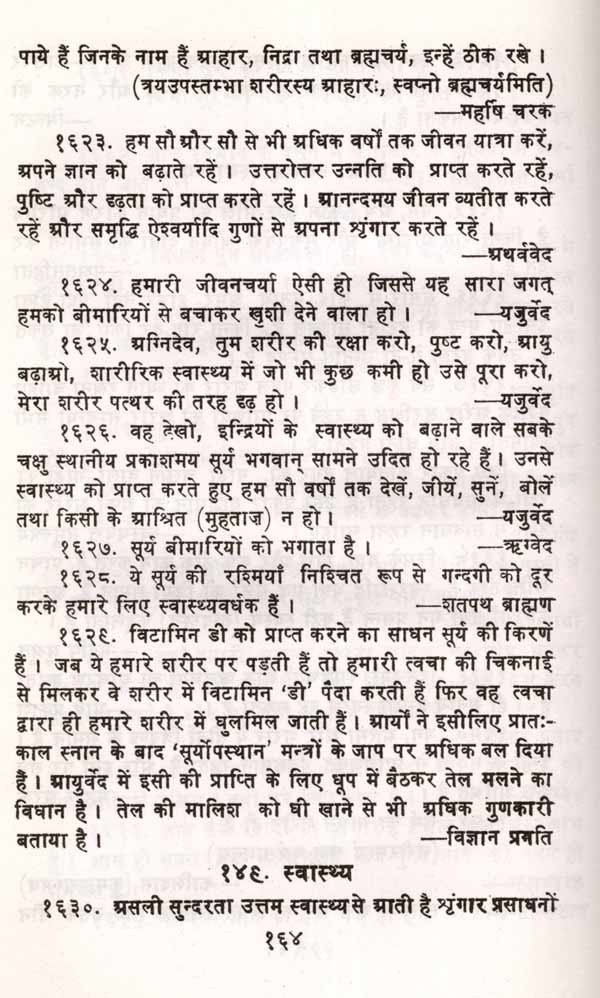 पाये हैं जिनके नाम हैं आहार, निद्रा तथा ब्रह्मचर्य, इन्हें ठीक रखे ।
(त्रयउपस्तम्भा शरीरस्य आहारः, स्वप्नो ब्रह्मचर्यमिति)
—महर्षि चरक
१६२३. हम सौ और सौ से भी अधिक वर्षों तक जीवन यात्रा करें,
अपने ज्ञान को बढ़ाते रहें । उत्तरोत्तर उन्नति को प्राप्त करते रहें,
पुष्टि और दृढ़ता को प्राप्त करते रहें । आनन्दमय जीवन व्यतीत करते
रहें और समृद्धि ऐश्वर्यादि गुणों से अपना शृंगार करते रहें ।
—अथर्ववेद
१६२४. हमारी जीवनचर्या ऐसी हो जिससे यह सारा जगत्
हमको बीमारियों से बचाकर खुशी देने वाला हो । —यजुर्वेद
१६२५. अग्निदेव, तुम शरीर की रक्षा करो, पुष्ट करो, आयु
बढ़ाओ, शारीरिक स्वास्थ्य में जो भी कुछ कमी हो उसे पूरा करो,
मेरा शरीर पत्थर की तरह दृढ़ हो । —यजुर्वेद
१६२६. वह देखो, इन्द्रियों के स्वास्थ्य को बढ़ाने वाले सबके
चक्षु स्थानीय प्रकाशमय सूर्य भगवान् सामने उदित हो रहे हैं । उनसे
स्वास्थ्य को प्राप्त करते हुए हम सौ वर्षों तक देखें, जीयें, सुनें, बोलें
तथा किसी के आश्रित (मुहताज) न हो । —यजुर्वेद
१६२७. सूर्य बीमारियों को भगाता है । —ऋग्वेद
१६२८. ये सूर्य की रश्मियाँ निश्चित रूप से गन्दगी को दूर
करके हमारे लिए स्वास्थ्यवर्धक हैं । —शतपथ ब्राह्मण
१६२९. विटामिन डी को प्राप्त करने का साधन सूर्य की किरणें
हैं । जब ये हमारे शरीर पर पड़ती हैं तो हमारी त्वचा की चिकनाई
से मिलकर वे शरीर में विटामिन ‘डी’ पैदा करती हैं फिर वह त्वचा
द्वारा ही हमारे शरीर में घुलमिल जाती हैं । आर्यों ने इसीलिए प्रातः-
काल स्नान के बाद ‘सूर्योपस्थान’ मन्त्रों के जाप पर अधिक बल दिया
है । आयुर्वेद में इसी की प्राप्ति के लिए धूप में बैठकर तेल मलने का
विधान है । तेल की मालिश को घी खाने से भी अधिक गुणकारी
बताया है । —विज्ञान प्रगति
१४९. स्वास्थ्य
१६३०. असली सुन्दरता उत्तम स्वास्थ्य से आती है शृंगार प्रसाधनों
१६४